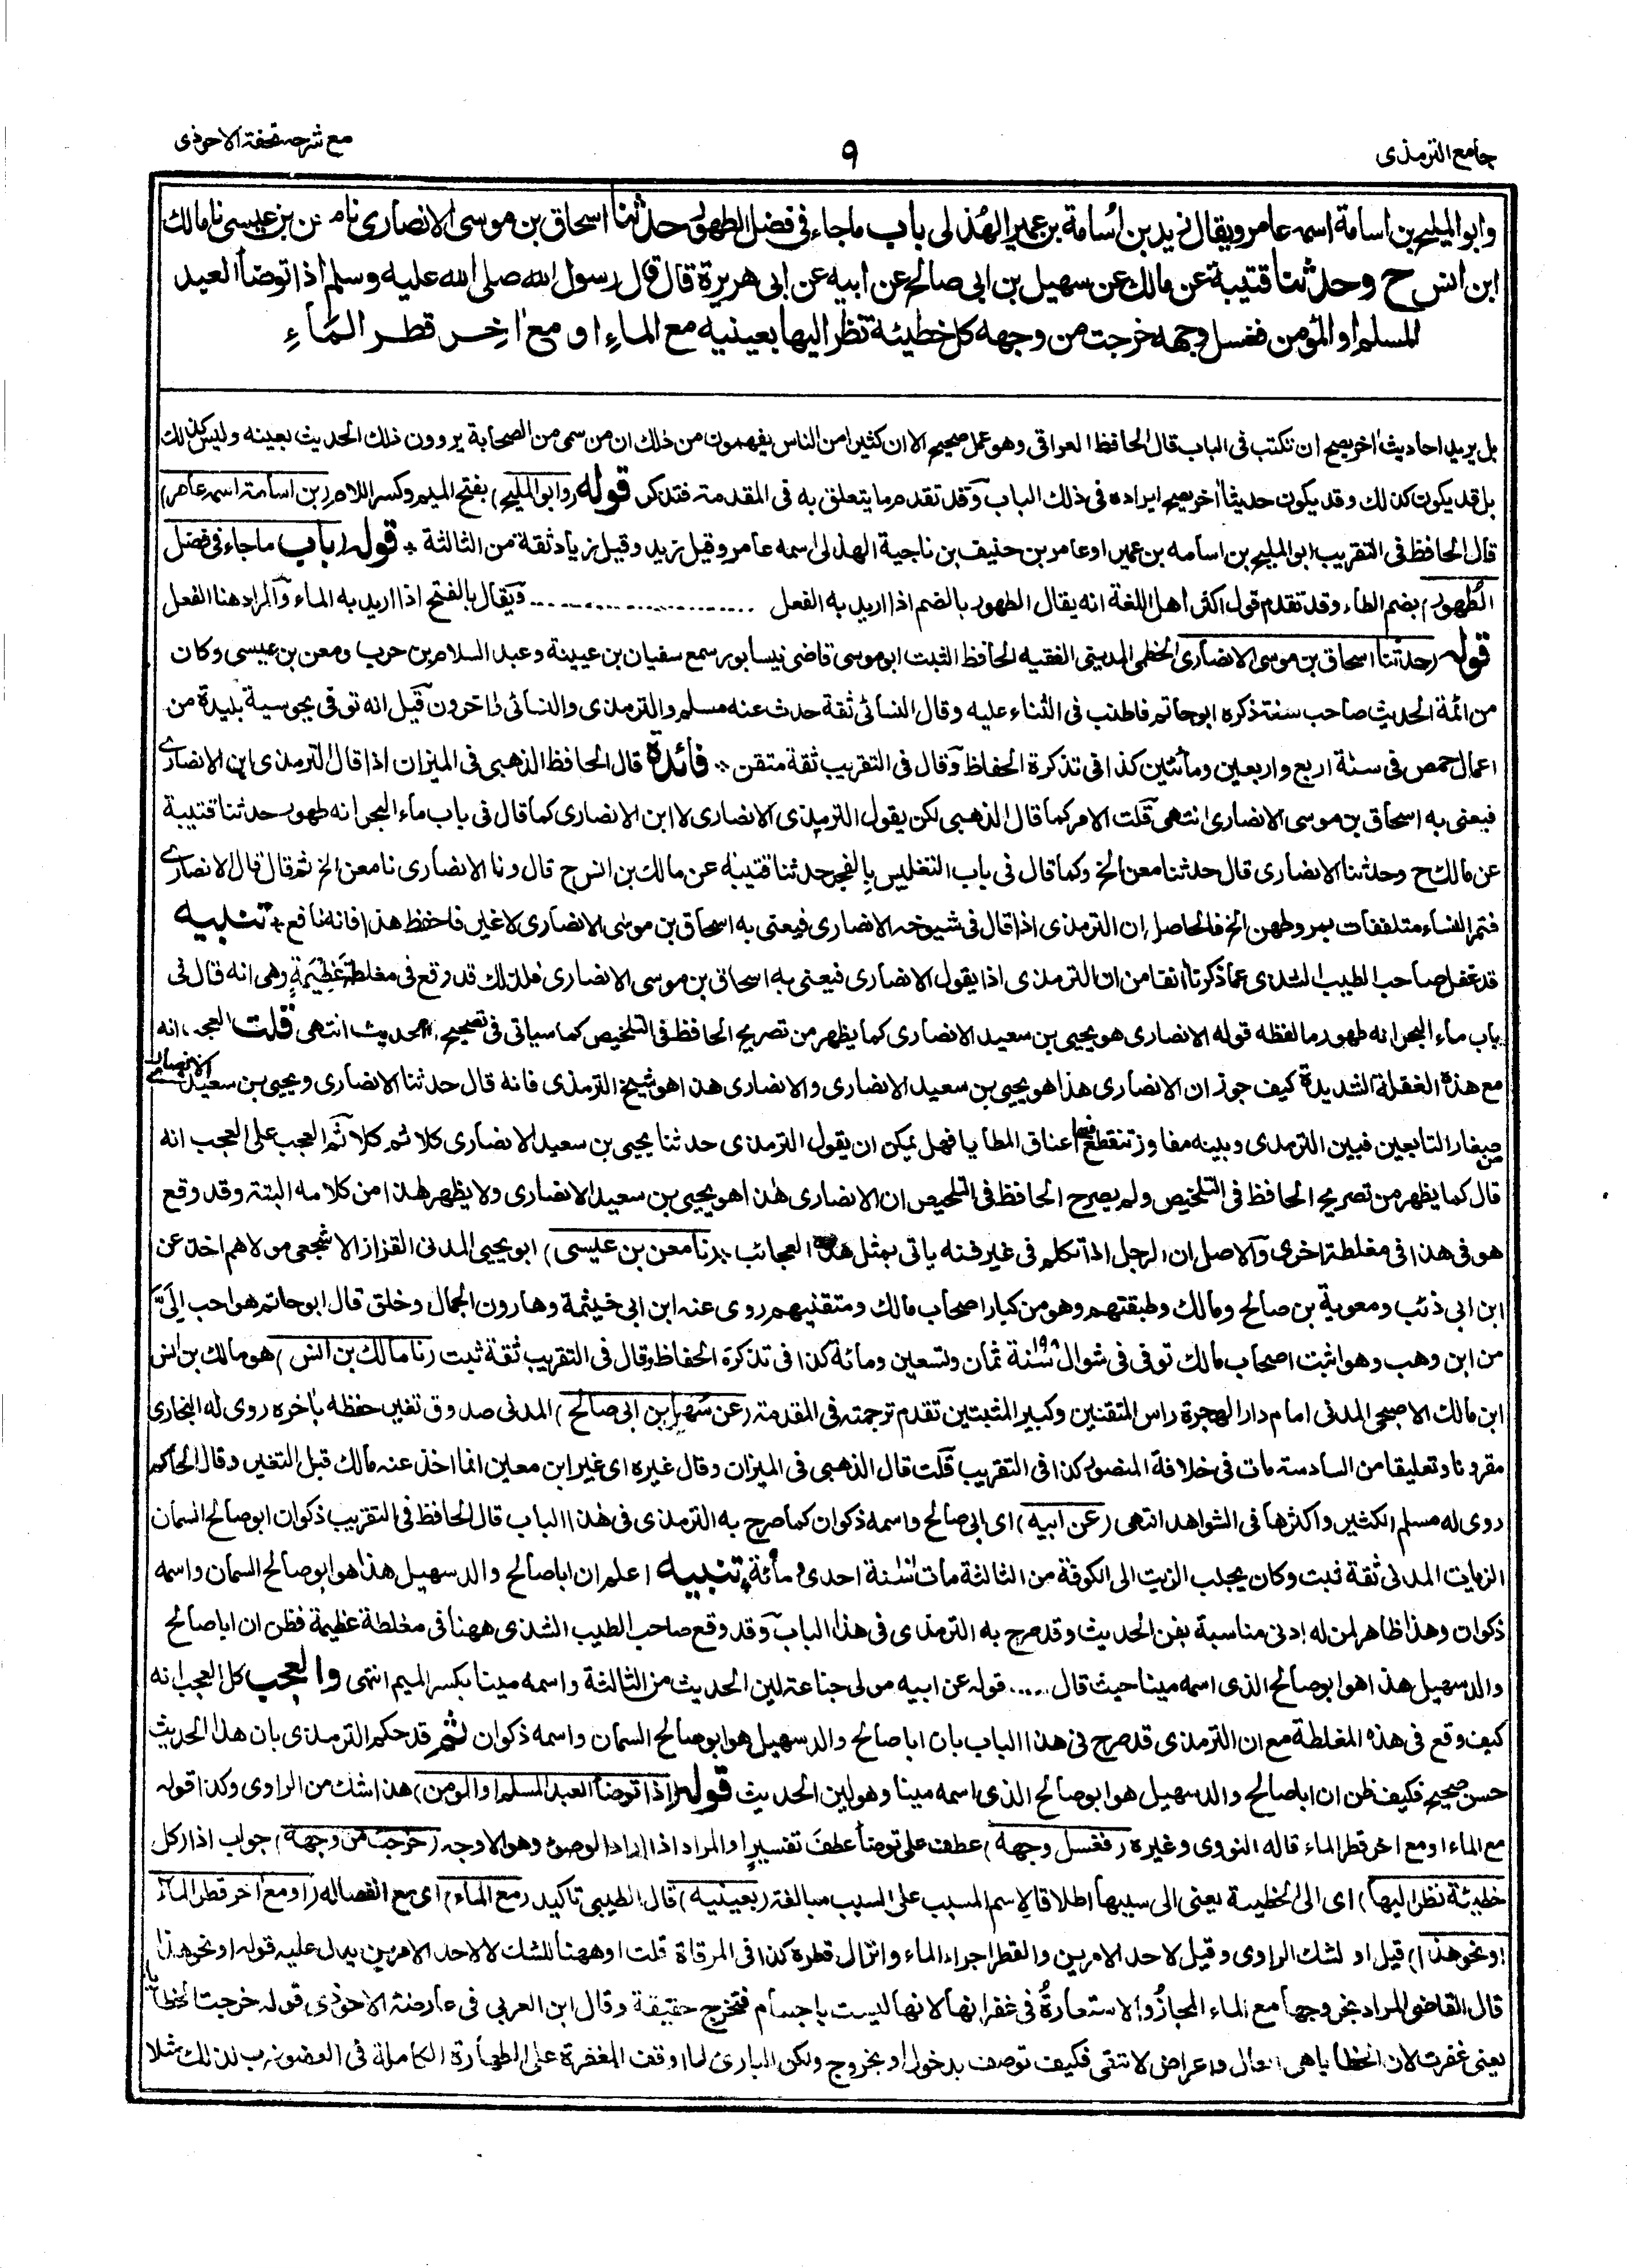 جامع الترمذی
۹
مع شرحه تحفة الاحوذی
وابو المليح بن اسامة اسمه عامر ويقال زيد بن اُسامة بن عمير الهُذلى باب ماجاء فى فضل الطهور حدثنا اسحاق بن موسى الانصارى نا معن بن عيسى نا مالك
ابن انس ح وحدثنا قتيبة عن مالك عن سهيل بن ابى صالح عن ابيه عن ابى هريرة قال قال رسول الله صلى الله عليه وسلم اذا توضأ العبد
المسلم او المؤمن فغسل وجهه خرجت من وجهه كل خطيئة نظر اليها بعينيه مع الماءِ او مع اٰخِر قطر المَاءِ
بل يريد احاديث اُخر يصح ان تكتب فى الباب قال الحافظ العراقى وهو عمل صحيح الا ان كثيرا من الناس يفهمون من ذلك ان من سمى من الصحابة يروون ذلك الحديث بعينه وليس كذلك
بل قد يكون كذلك وقد يكون حديثا اٰخر يصح ايراده فى ذلك الباب وقد تقدم ما يتعلق به فى المقدمة فتذكر قوله (وابو المليح) بفتح الميم وكسر اللام (بن اسامة اسمه عامر)
قال الحافظ فى التقريب ابو المليح بن اسامه بن عمير او عامر بن حنيف بن ناجية الهذلى اسمه عامر وقيل زيد وقيل زياد ثقة من الثالثة * قوله (باب ماجاء فى فضل
الطُهور) بضم الطاء وقد تقدم قول اكثر اهل اللغة انه يقال الطهور بالضم اذا اريد به الفعل .................... ويقال بالفتح اذا اريد به الماء والمراد هنا الفعل
قوله (حدثنا اسحاق بن موسى الانصارى) الخطمى المدينى الفقيه الحافظ الثبت ابو موسى قاضى نيسابور سمع سفيان بن عيينة وعبد السلام بن حرب ومعن بن عيسى وكان
من ائمة الحديث صاحب سنة ذكره ابو حاتم فاطنب فى الثناء عليه وقال النسائى ثقة حدث عنه مسلم والترمذى والنسائى واٰخرون قيل انه توفى بجوسية بليدة من
اعمال حمص فى سنة اربع واربعين ومأتين كذا فى تذكرة الحفاظ وقال فى التقريب ثقة متقن * فائدة قال الحافظ الذهبى فى الميزان اذا قال الترمذى ابن الانصارى
فيعنى به اسحاق بن موسى الانصارى انتهى قلت الامر كما قال الذهبى لكن يقول الترمذى الانصارى لا ابن الانصارى كما قال فى باب ماء البحر انه طهور حدثنا قتيبة
عن مالك ح وحدثنا الانصارى قال حدثنا معن الخ وكما قال فى باب التغليس بالفجر حدثنا قتيبة عن مالك بن انس ح قال ونا الانصارى نا معن الخ ثم قال قال الانصارى
فتمر النساء متلففات بمروطهن الخ فالحاصل ان الترمذى اذا قال فى شيوخه الانصارى فيعنى به اسحاق بن موسى الانصارى لا غير فاحفظ هذا فانه نافع * تنبيه
قد غفل صاحب الطيب الشذى عما ذكرنا اٰنفا من ان الترمذى اذا يقول الانصارى فيعنى به اسحاق بن موسى الانصارى فلذلك قد وقع فى مغلطة عَظِيمَةٍ وهى انه قال فى
باب ماء البحر انه طهور ما لفظه قوله الانصارى هو يحيى بن سعيد الانصارى كما يظهر من تصريح الحافظ فى التلخيص كما سيأتى فى تصحيح الحديث انتهى قلت العجب انه
مع هذه الغفلة الشديدة كيف جوز ان الانصارى هذا هو يحيى بن سعيد الانصارى والانصارى هذا هو شيخ الترمذى فانه قال حدثنا الانصارى ويحيى بن سعيد الانصارى
من صغار التابعين فبين الترمذى وبينه مفاوز تنقطع فيها اعناق المطايا فهل يمكن ان يقول الترمذى حدثنا يحيى بن سعيد الانصارى كلا ثم كلا ثم العجب على العجب انه
قال كما يظهر من تصريح الحافظ فى التلخيص ولم يصرح الحافظ فى التلخيص ان الانصارى هٰذا هو يحيى بن سعيد الانصارى ولا يظهر هٰذا من كلامه البتة وقد وقع
هو فى هذا فى مغلطة اخرى والاصل ان الرجل اذا تكلم فى غير فنه يأتى بمثل هذه العجائب * (نا معن بن عيسى) ابو يحيى المدنى القزاز الاشجعى مولاهم اخذ عن
ابن ابى ذئب ومعوية بن صالح ومالك وطبقتهم وهو من كبار اصحاب مالك ومتقنيهم روى عنه ابن ابى خيثمة وهارون الجمال وخلق قال ابو حاتم هو احب اِلَىَّ
من ابن وهب وهو اثبت اصحاب مالك توفى فى شوال ١٩٨ سنة ثمان وتسعين ومائة كذا فى تذكرة الحفاظ وقال فى التقريب ثقة ثبت (نا مالك بن انس) هو مالك بن انس
ابن مالك الاصبحى المدنى امام دار الهجرة راس المتقنين وكبير المثبتين تقدم ترجمته فى المقدمة (عن سُهيل بن ابى صالح) المدنى صدوق تغير حفظه بآخره روى له البخارى
مقرونا وتعليقا من السادسة مات فى خلافة المنصور كذا فى التقريب قلت قال الذهبى فى الميزان وقال غيره اى غير ابن معين انما اخذ عنه مالك قبل التغير وقال الحاكم
روى له مسلم الكثير واكثرها فى الشواهد انتهى (عن ابيه) اى ابى صالح واسمه ذكوان كما صرح به الترمذى فى هٰذا الباب قال الحافظ فى التقريب ذكوان ابو صالح السمان
الزيات المدنى ثقة ثبت وكان يجلب الزيت الى الكوفة من الثالثة مات سنة احدى ومائة * تنبيه اعلم ان ابا صالح والد سهيل هذا هو ابو صالح السمان واسمه
ذكوان وهذا ظاهر لمن له ادنى مناسبة بفن الحديث وقد صرح به الترمذى فى هذا الباب وقد وقع صاحب الطيب الشذى ههنا فى مغلطة عظيمة فظن ان ابا صالح
والد سهيل هذا هو ابو صالح الذى اسمه مينا حيث قال ..... قوله عن ابيه مولى جناعة لين الحديث من الثالثة واسمه مينا بكسر الميم انتهى والعجب كل العجب انه
كيف وقع فى هذه المغلطة مع ان الترمذى قد صرح فى هذا الباب بان ابا صالح والد سهيل هو ابو صالح السمان واسمه ذكوان ثم قد حكم الترمذى بان هذا الحديث
حسن صحيح فكيف ظن ان ابا صالح والد سهيل هو ابو صالح الذى اسمه مينا وهو لين الحديث قوله (اذا توضأ العبد المسلم او المومن) هذا شك من الراوى وكذا قوله
مع الماء او مع اخر قطر الماء قاله النووى وغيره (فغسل وجهه) عطف على توضأ عطفَ تفسيرٍ او المراد اذا اراد الوضوء وهو الاوجه (خرجت من وجهه) جواب اذا (كل
خطيئة نظر اليها) اى الى الخطيئة يعنى الى سببها اطلاقا لاسم المسبب على السبب مبالغة (بعينيه) قال الطيبى تاكيد (مع الماء) اى مع انفصاله (او مع اٰخر قطر الماء
او نحو هذا) قيل او لشك الراوى وقيل لاحد الامرين والقطر اجراء الماء وانزال قطره كذا فى المرقاة قلت او ههنا للشك لا لاحد الامرين يدل عليه قوله او نحو هذا
قال القاضى المراد بخروجها مع الماء المجازُ والاستعارةُ فى غفرانها لانها ليست باجسام فتخرج حقيقة وقال ابن العربى فى عارضة الاحوذى قوله خرجت الخطايا
يعنى غفرت لان الخطايا هى افعال واعراض لا تبقى فكيف توصف بدخول او بخروج ولكن البارى لما اوقف المغفرة على الطهارة الكاملة فى العضو ضرب لذلك مثلا